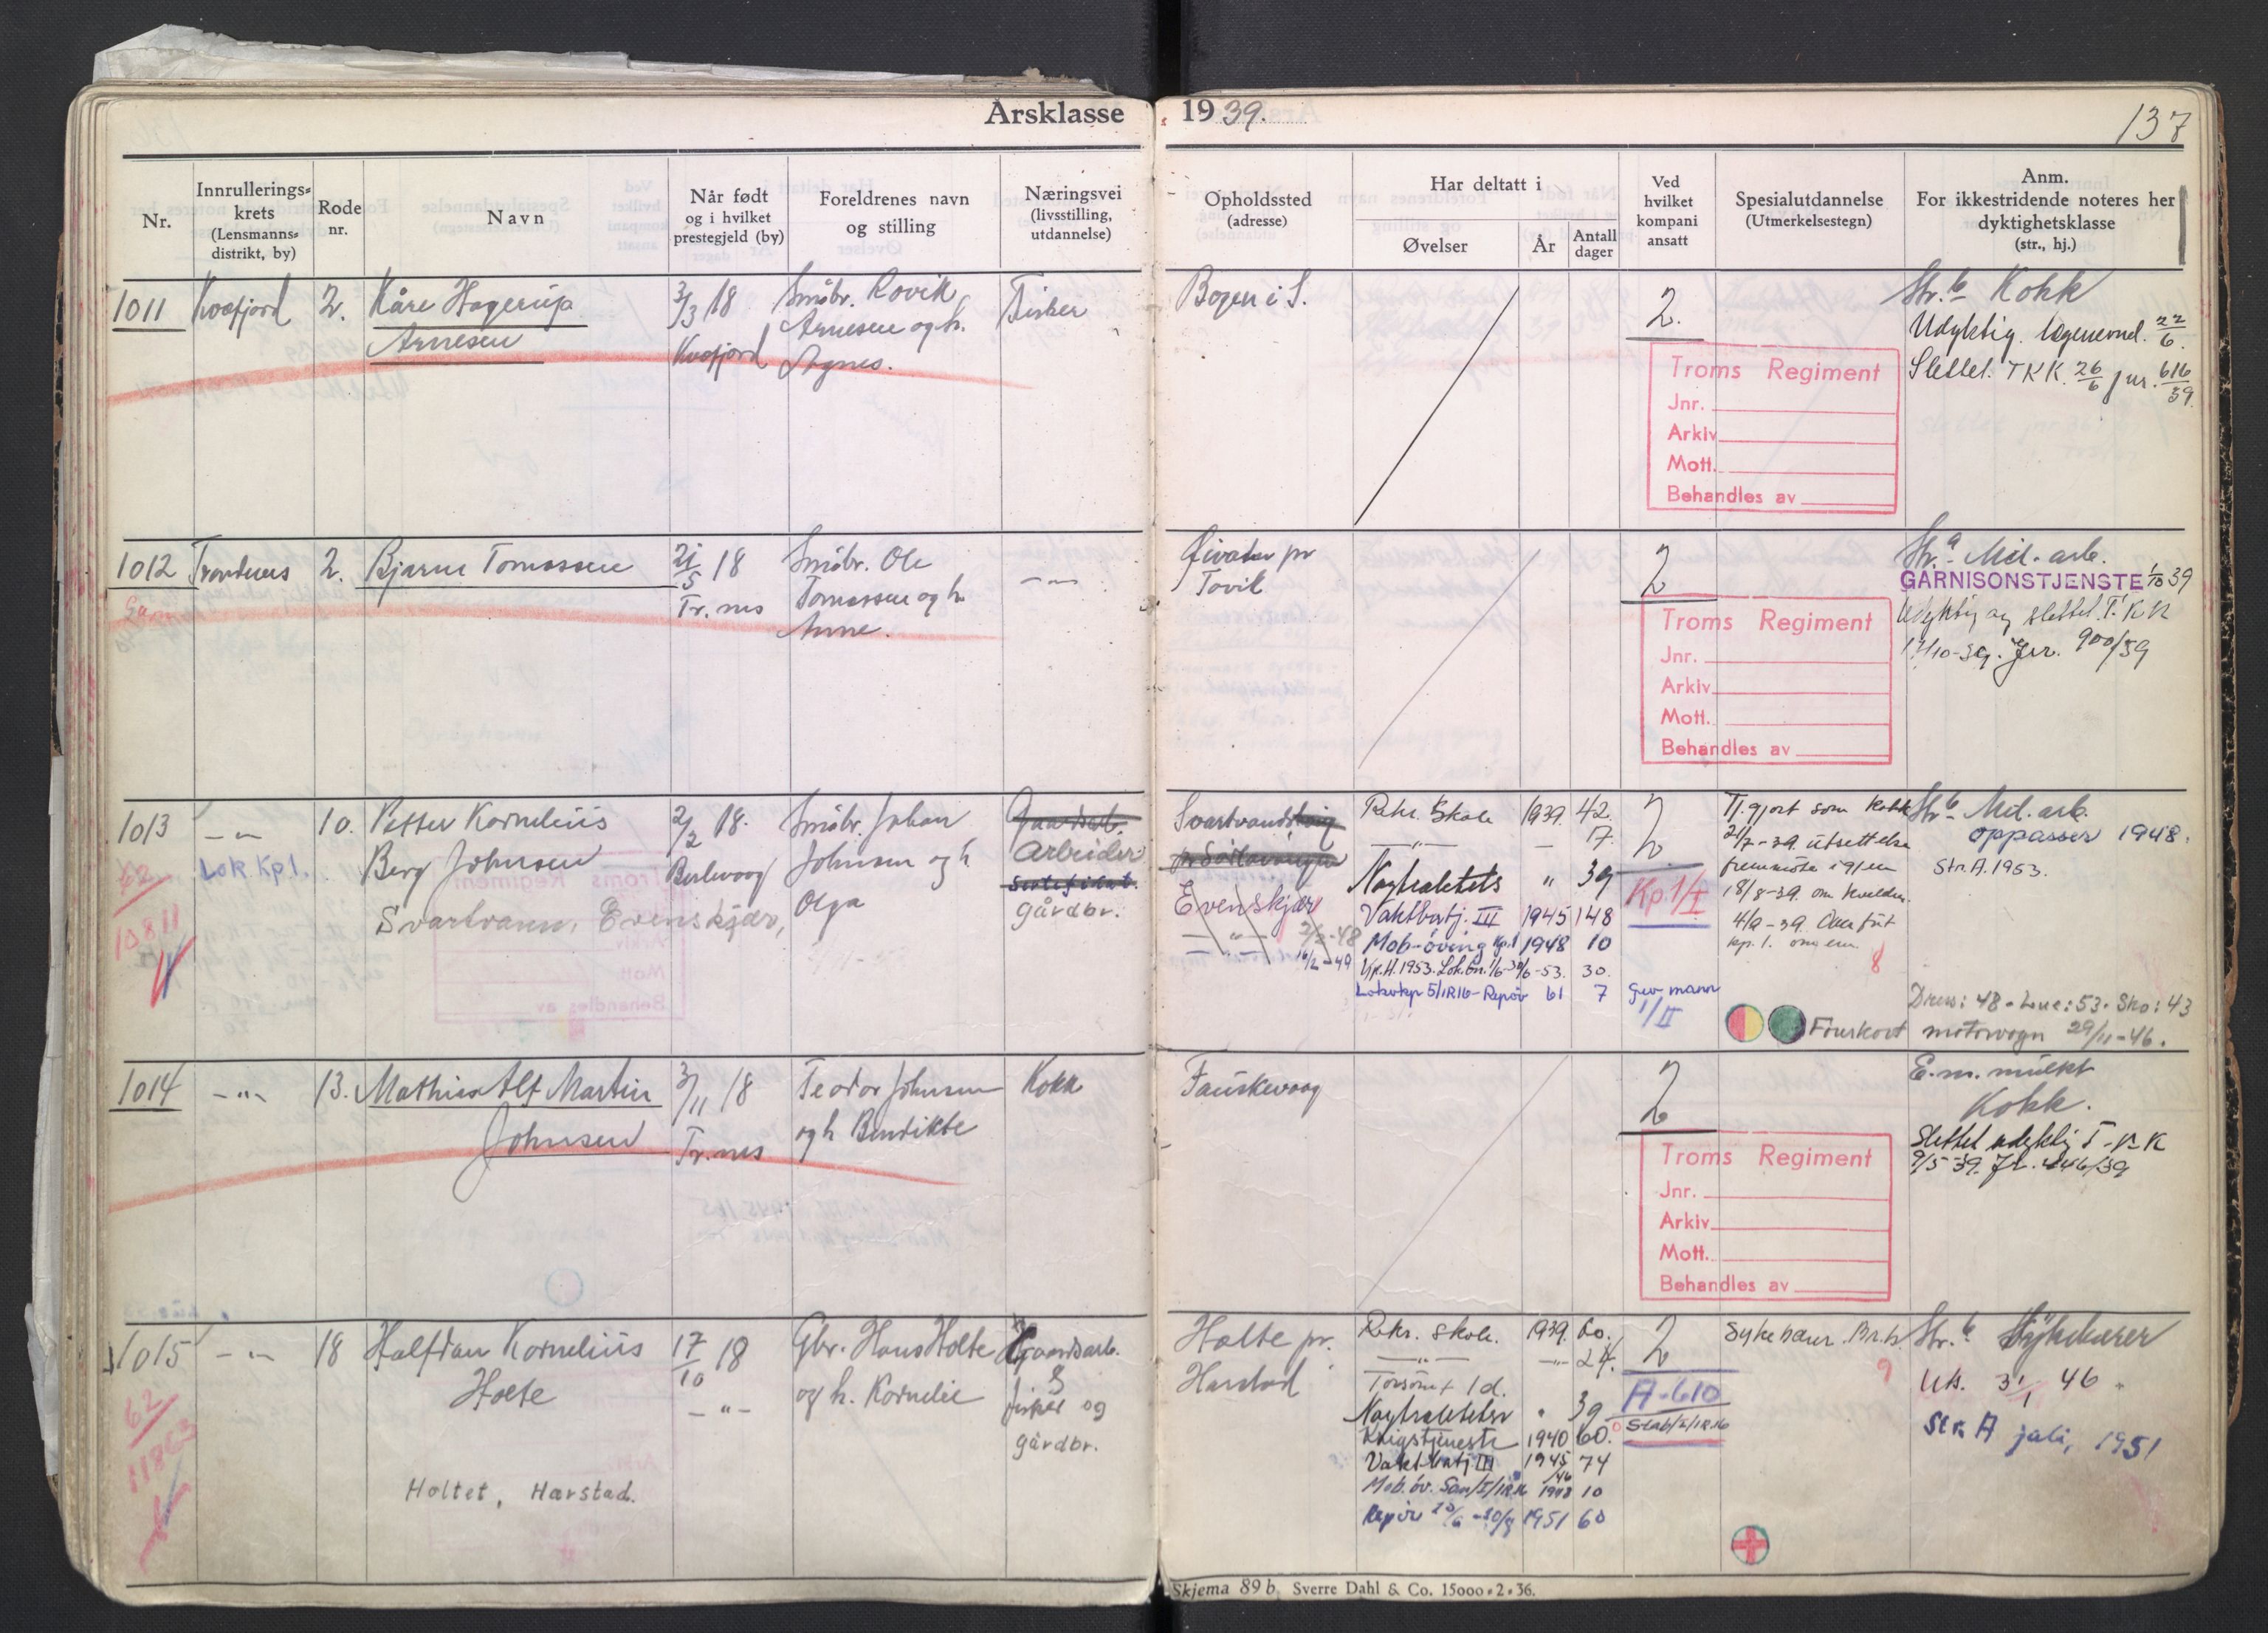 Årsklasse 1939.
137
Nr.
Innrullerings-
krets
(Lensmanns-
distrikt, by)
Rode
nr.
Navn
Når født
og i hvilket
prestegjeld (by)
Foreldrenes navn
og stilling
Næringsvei
(livsstilling,
utdannelse)
Opholdssted
(adresse)
Har deltatt i
Øvelser
År
Antall
dager
Ved
hvilket
kompani
ansatt
Spesialutdannelse
(Utmerkelsestegn)
Anm.
For ikkestridende noteres her
dyktighetsklasse
(str., hj.)
1011
Kvæfjord
2.
Kåre Hagerup
Arnesen
3/3 18
Kvæfjord
Småbr. Rovik
Arnesen og h.
Agnes.
Fisker
Bogen i S.
2.
Str. b Kokk
Udyktig. lægenevnd. 22/6.
Slettet. T K K. 26/6 jnr. 616/39.
Troms Regiment
Jnr.
Arkiv
Mott.
Behandles av
1012
Trondenes
2.
Bjarne Tomassen
21/5 18
Tr.nes
Småbr. Ole
Tomassen og h.
Anne.
— " —
pr
Tovik
2
Str. a Mil. arb.
GARNISONSTJENSTE 1/10 39
Udyktig og slettet. T. K K
17/10-39. Jnr. 900/39
Troms Regiment
Jnr.
Arkiv
Mott.
Behandles av
1013
— " —
10.
Petter Kornelius
Berg Johnsen
Svartvann, Evenskjær,
Lok Kp 1.
62
10811
2/2 18.
Berlevaag
Småbr. Johan
Johnsen og h
Olga
Gaardsarb.
Arbeider
Gårdbr.
Evenskjær
— " — 2/3-48
— " — 16/2-49
Rekr. Skole 1939. 42.
— " — — 17.
Nøytralitets " 39
Vaktbatj. III 1945 148
Mob-øving Kp. 1 1948 10
Kp. H. 1953. Lok. Bn. 1/6-30/6-53. 30.
Lokvkp 5/IR16 - Repøv 61 7
2
Kp. 1/I
Gev mann
1/II
Tj.gjort som Kokk
21/7-39. utsettelse
fremmøte igjen
18/8-39. om kvelden.
4/9-39. Overført
kp. 1.
8
Førerkort motorvogn 29/11-46.
Str. b Mil. arb.
oppasser 1948.
Str. A. 1953.
Dress: 48 - Lue: 53 - Sko: 43
1014
— " —
13.
Mathias Alf Martin
Johnsen
3/11 18
Tr.nes
Teodor Johnsen
og h. Bendikte
Kokk
Fauskevaag
2
E.m. mulkt
Kokk.
Slettet udyktig T-K K
9/5-39. Jnr. 446/39
Troms Regiment
Jnr.
Arkiv
Mott.
Behandles av
1015
— " —
18
Halfdan Kornelius
Holte
Holtet, Harstad.
62
11863
17/10 18
— " —
Gbr. Hans Holte
og h. Kornelie
Gaardsarb.
fisker og
gårdbr.
Holte pr.
Harstad
Rekr. skole. 1939. 60.
— " — — " — 24.
Nøytralitetsv " 39
Krigstjeneste 1940 60.
Vaktbatj III 1945/46 74
Mob. øv. San/I/IR16 1948 10
Repøv 20/6-20/8 1951 60
2
A-610
Stab/I/IR16
Sykebærer
9
Str. b Sykebærer
Uts. 31/1 46.
Str. A juli, 1951
Skjema 89 b. Sverre Dahl & Co. 15000.2.36.